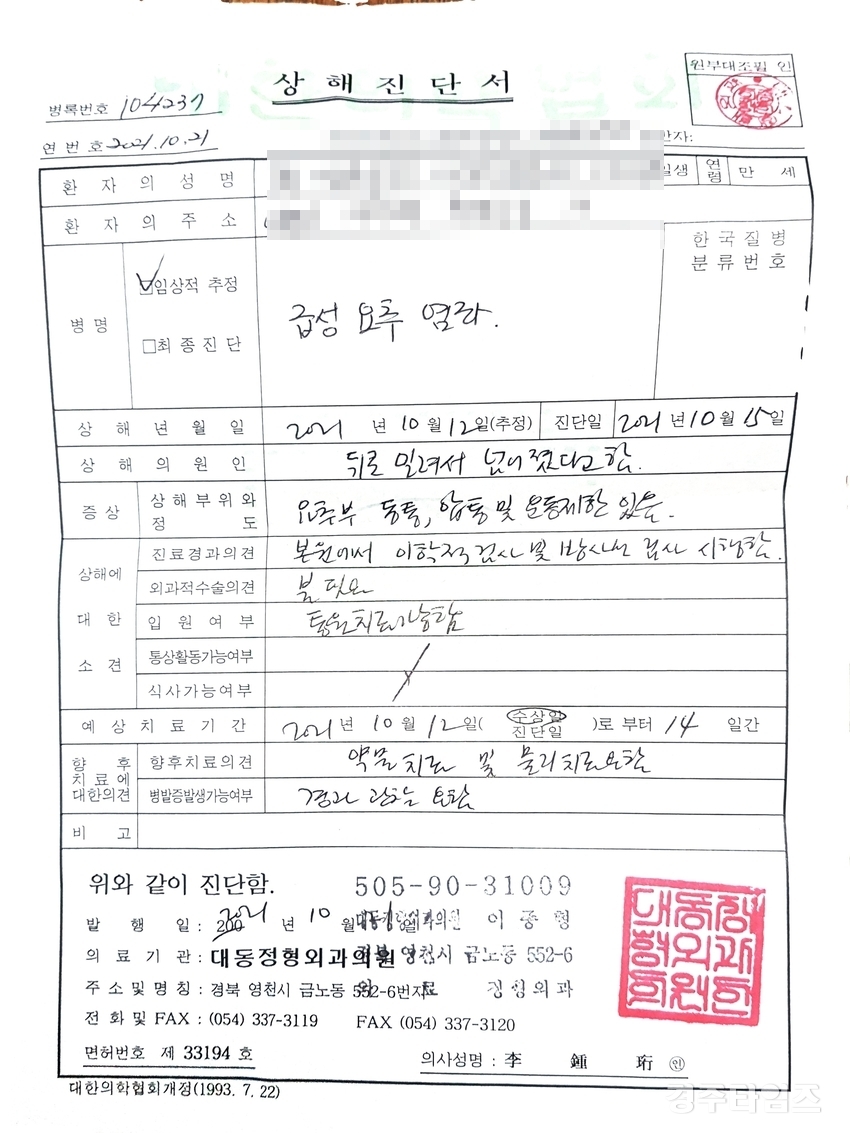 상 해 진 단 서
원부대조필 인
병록번호 104237
연 번 호 2021.10.21
환 자 의 성 명
일생 연령 만 세
환 자 의 주 소
한 국 질 병
분 류 번 호
병 명
임상적 추정
급성 요추 염좌.
□최 종 진 단
상 해 년 월 일 2021 년 10 월 12일(추정) 진단일 2021년 10 월 15일
상 해 의 원 인 뒤로 밀려서 넘어졌다고 함.
증 상 상 해 부 위 와 정 도 요추부 동통, 압통 및 운동제한 있음.
상해에 대 한 소 견
진료경과의견 본원에서 이학적 검사 및 방사선 검사 시행함.
외과적수술의견 불필요
입 원 여 부 통원치료가능함
통상활동가능여부
식사가능여부
예 상 치 료 기 간 2021 년 10 월 12일( 수상일 진단일 )로 부터 14 일간
향 후 치 료 에 대한의견
향후치료의견 약물치료 및 물리치료요함
병발증발생가능여부 경과 관찰 요함
비 고
위와 같이 진단함. 505-90-31009
발 행 일 : 200 2021 년 10 월 일 대동정형외과의원 이 종 형
의 료 기 관 : 대동정형외과의원 경북 영천시 금노동 552-6
주 소 및 명 칭 : 경북 영천시 금노동 552-6번지 정형외과
전 화 및 FAX : (054) 337-3119 FAX (054) 337-3120
대동정형외과의원
면허번호 제 33194 호 의사성명 : 李 鍾 珩 ㊞
대한의학협회개정(1993. 7. 22)
경주타임즈